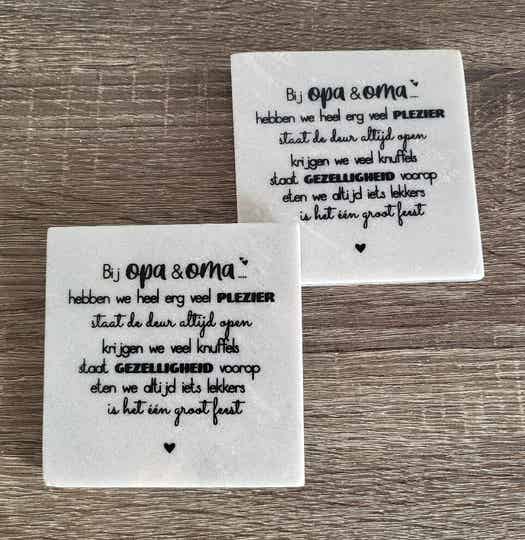 Bij opa & oma...
hebben we heel erg veel PLEZIER
staat de deur altijd open
krijgen we veel knuffels
staat GEZELLIGHEID voorop
eten we altijd iets lekkers
is het één groot feest
Bij opa & oma....
hebben we heel erg veel PLEZIER
staat de deur altijd open
krijgen we veel knuffels
staat GEZELLIGHEID voorop
eten we altijd iets lekkers
is het één groot feest